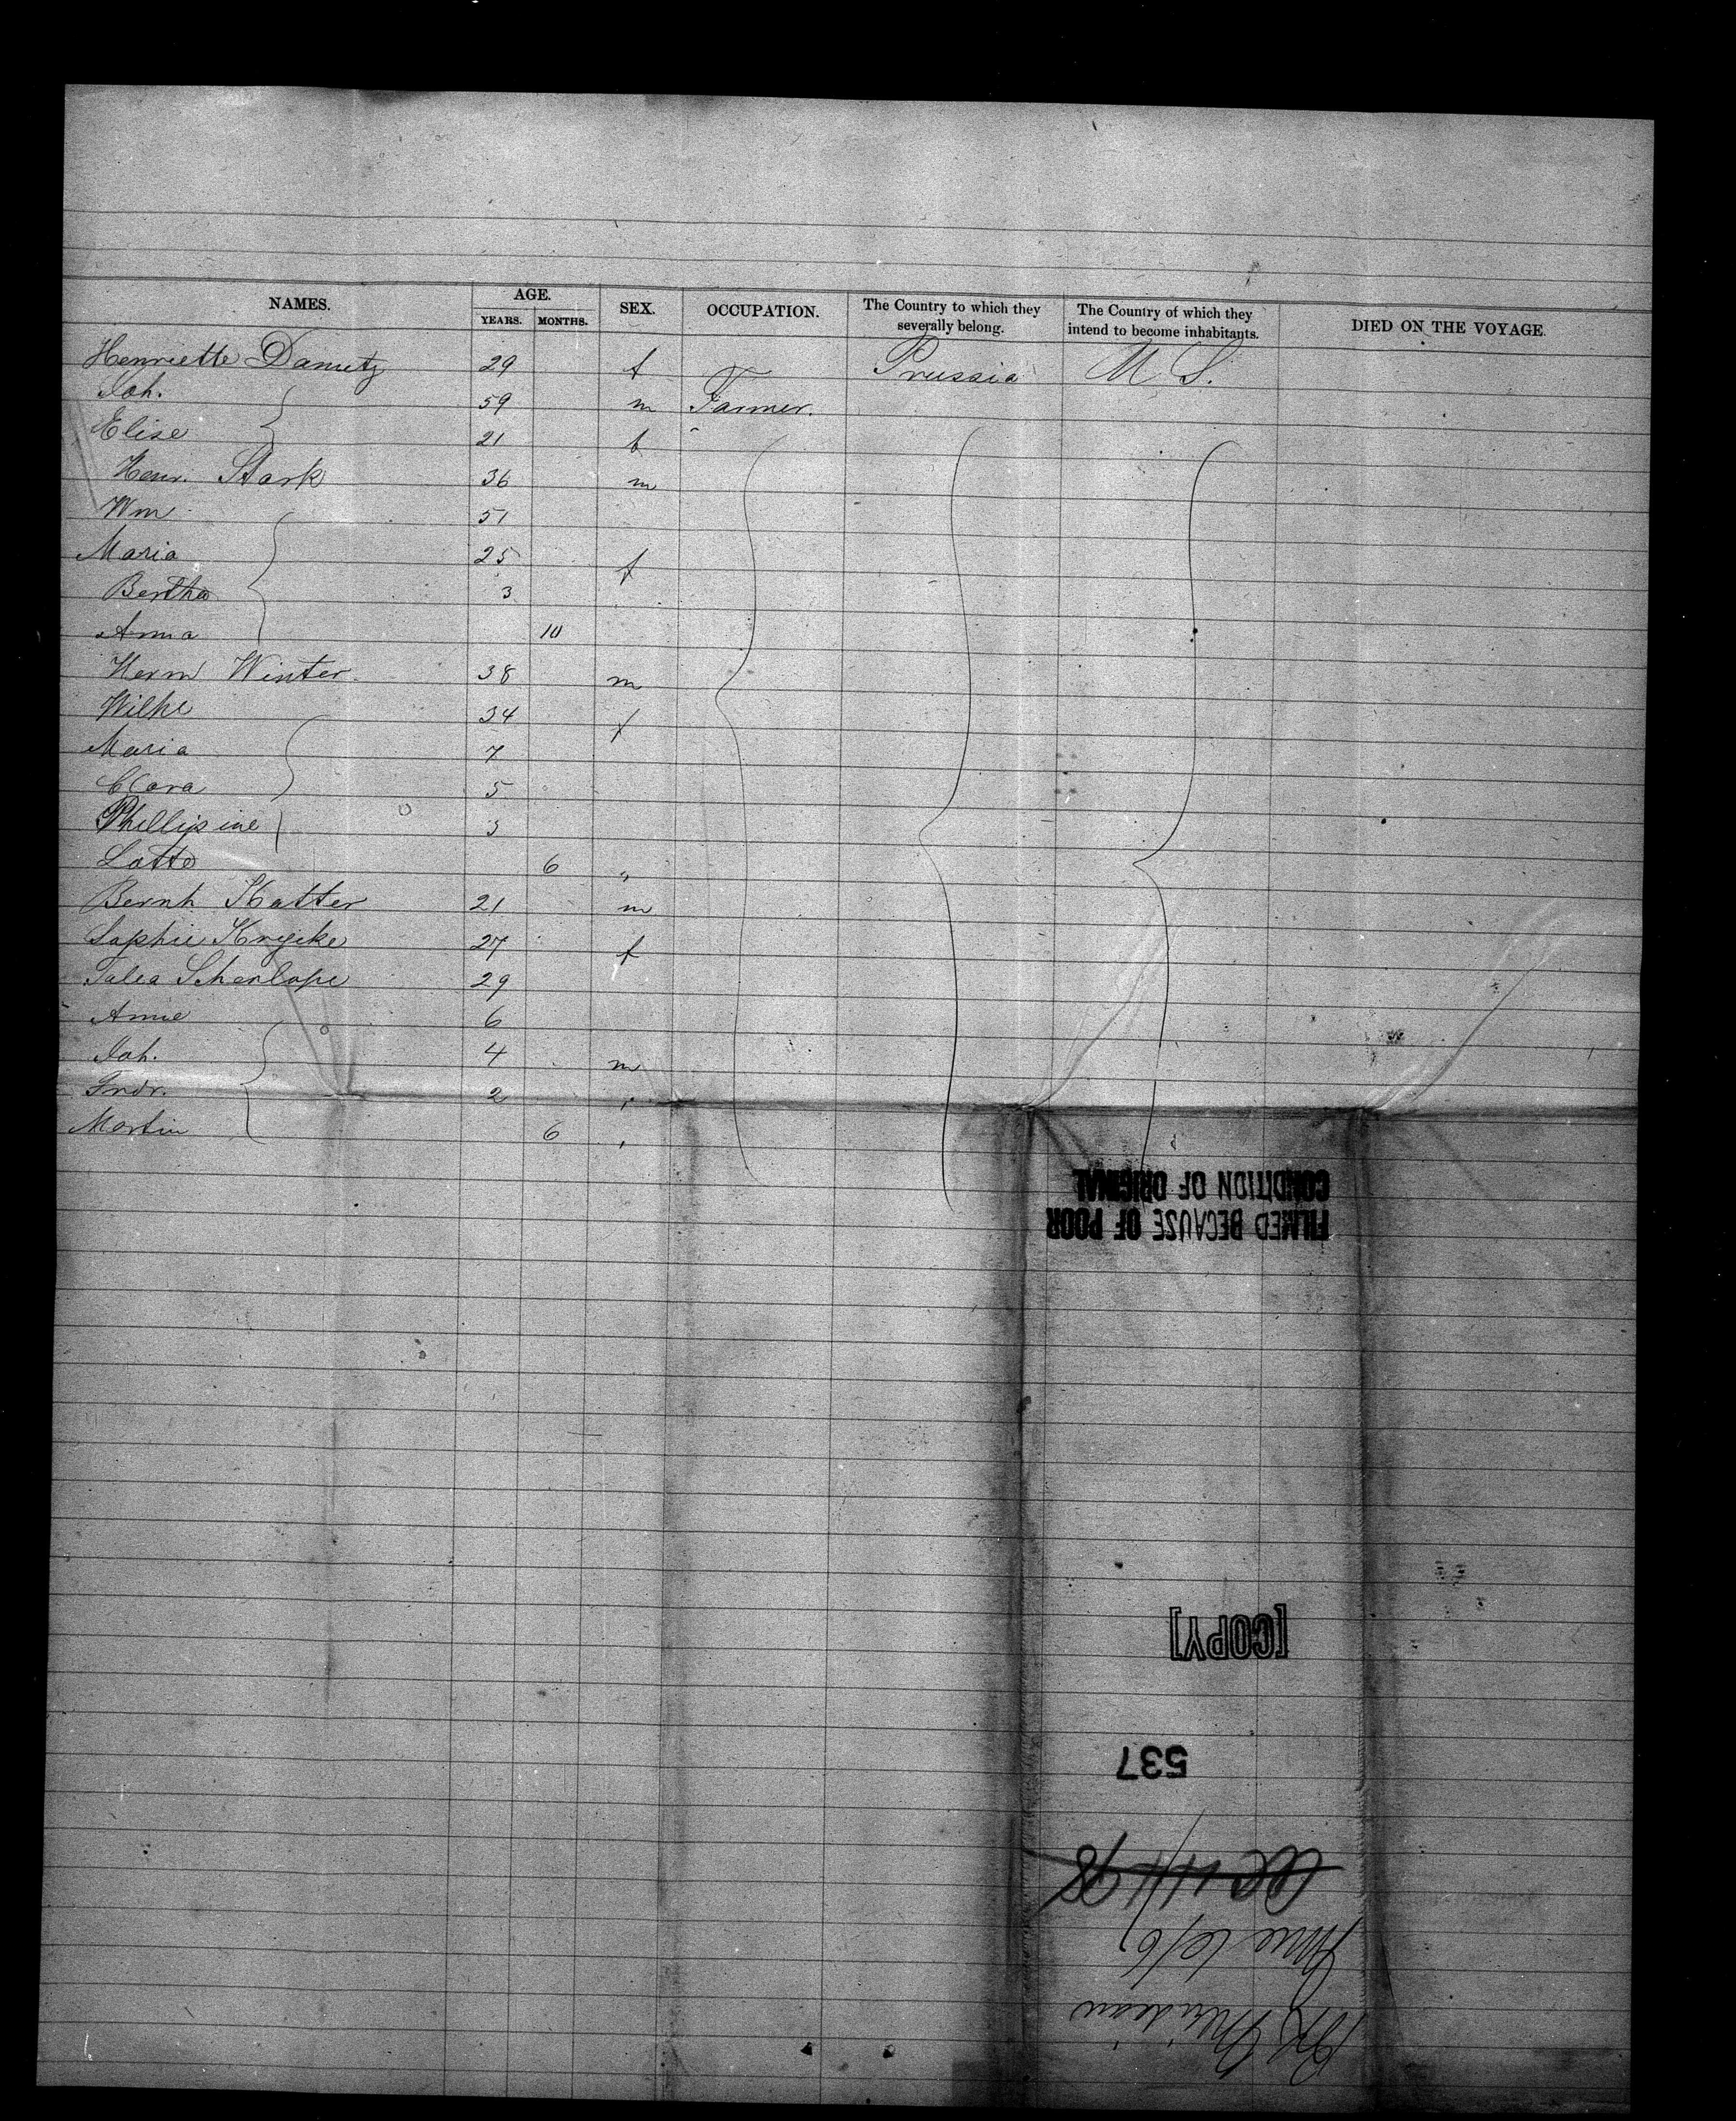 NAMES. AGE. SEX. OCCUPATION. The Country to which they severally belong. The Country of which they intend to become inhabitants. DIED ON THE VOYAGE.
YEARS. MONTHS.
Henriette Damutz 29 f Prussia U S.
Joh. 59 m Farmer.
Elise 21 f
Henr. Stark 36 m
Wm 51
Maria 25 f
Bertha 3
Anna 10
Herm Winter 38 m
Wilhe 34 f
Maria 7
Clara 5
Phillipine 3
Lotte 6 "
Bernh Hatter 21 m
Sophie 27 f
29
Annie 6
Joh. 4 m
2 "
Martin 6 "
FILMED BECAUSE OF POOR
CONDITION OF ORIGINAL
[COPY]
537
June 6/67
Bk